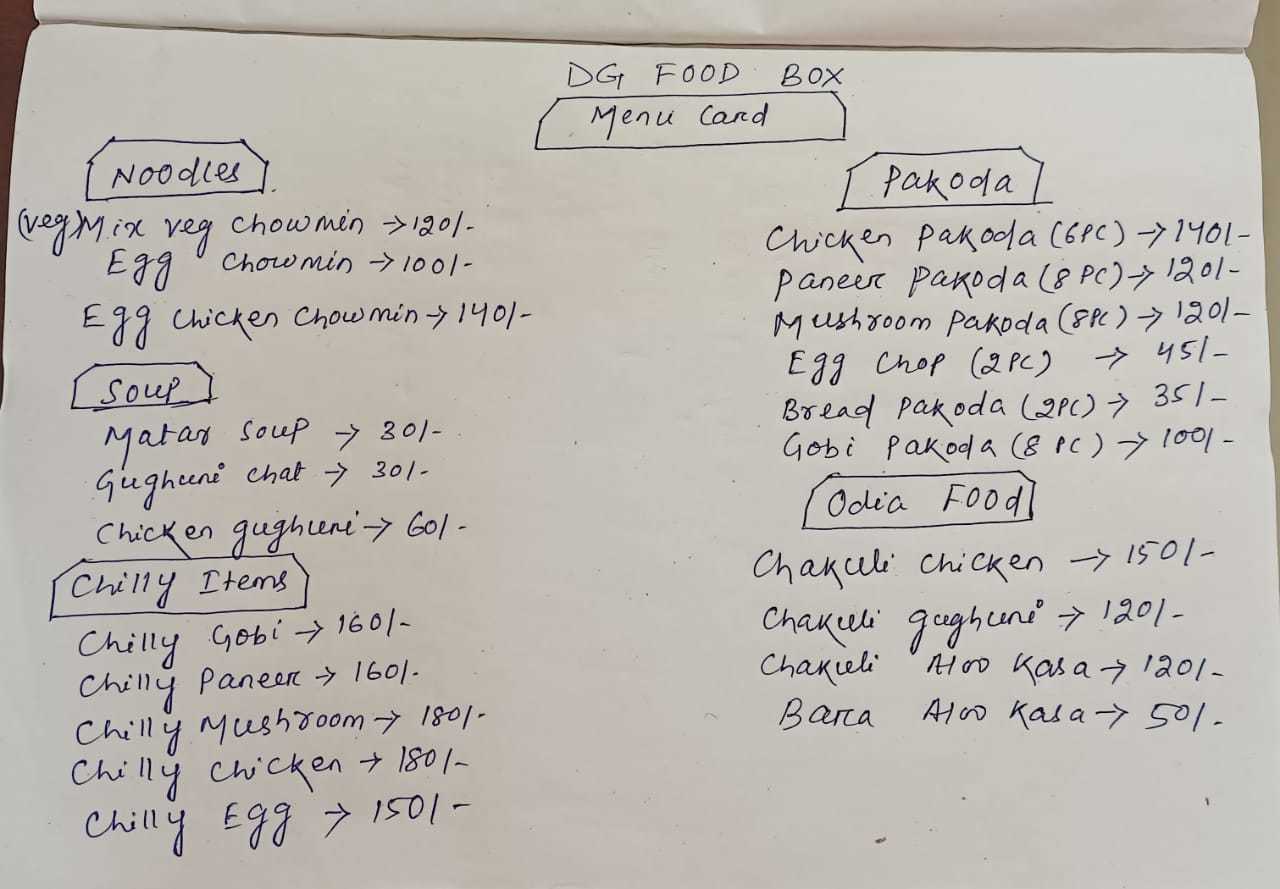 DG FOOD BOX
Menu Card
Noodles
(veg) Mix veg chowmin → 120/-
Egg chowmin → 100/-
Egg chicken chowmin → 140/-
Soup
Matar soup → 30/-
Gughuni chat → 30/-
Chicken gughuni → 60/-
Chilly Items
Chilly Gobi → 160/-
Chilly Paneer → 160/-
Chilly Mushroom → 180/-
Chilly chicken → 180/-
Chilly Egg → 150/-
Pakoda
Chicken Pakoda (6PC) → 140/-
Paneer Pakoda (8 PC) → 120/-
Mushroom Pakoda (8PC) → 120/-
Egg Chop (2 PC) → 45/-
Bread Pakoda (2PC) → 35/-
Gobi Pakoda (8 PC) → 100/-
Odia Food
Chakuli chicken → 150/-
Chakuli gughuni → 120/-
Chakuli Aloo Kasa → 120/-
Bara Aloo Kasa → 50/-